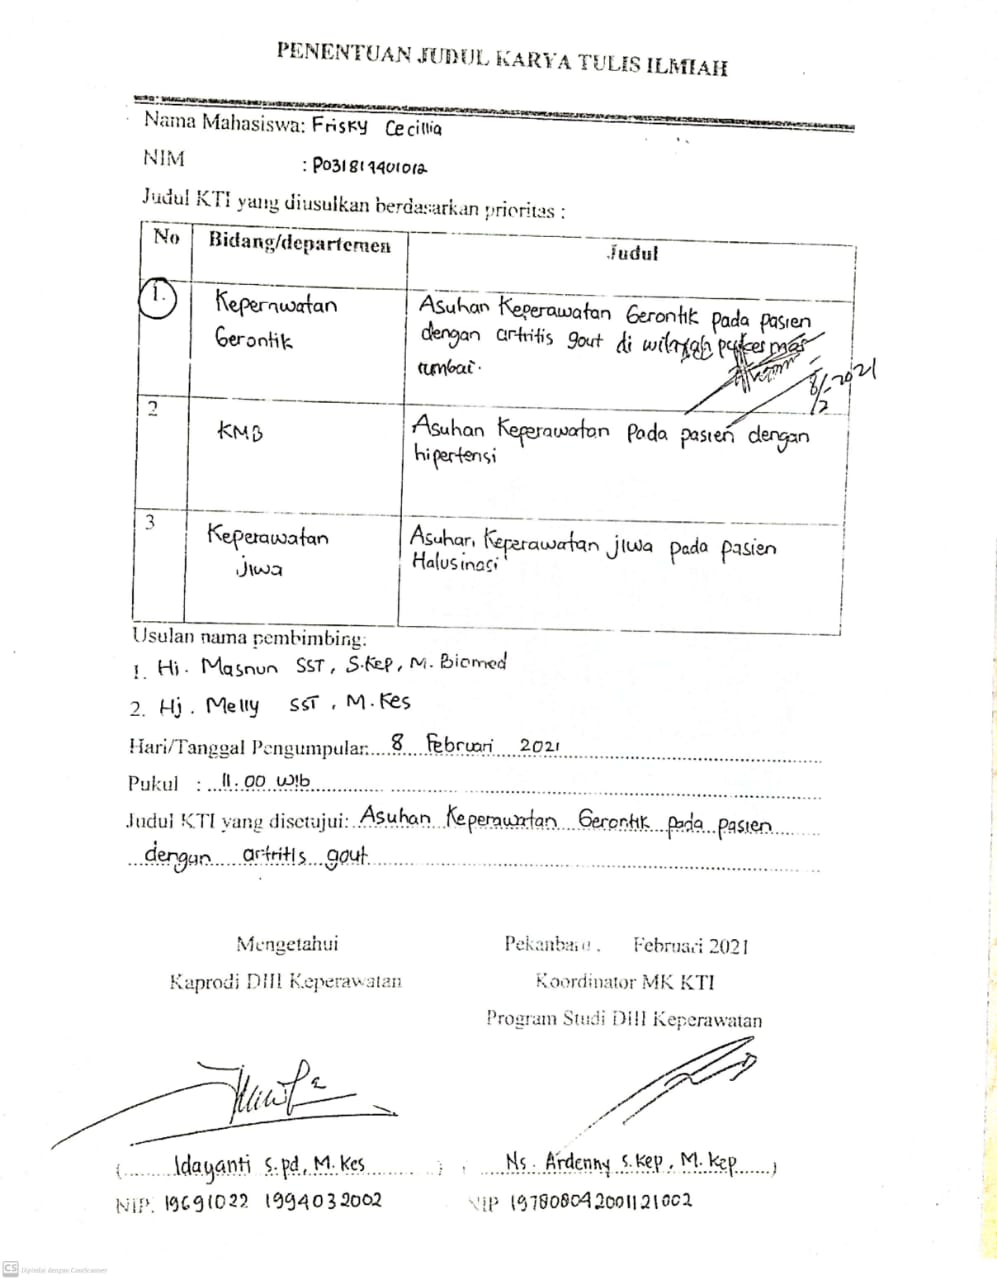 PENENTUAN JUDUL KARYA TULIS ILMIAH
Nama Mahasiswa: Frisky Cecillia
NIM : P031814401012
Judul KTI yang diusulkan berdasarkan prioritas :
No Bidang/departemen Judul
1. Keperawatan Gerontik Asuhan Keperawatan Gerontik pada pasien
dengan artritis gout di wilayah puskesmas
rumbai.
8/2-2021
2 KMB Asuhan Keperawatan pada pasien dengan
hipertensi
3 Keperawatan jiwa Asuhan Keperawatan jiwa pada pasien
Halusinasi
Usulan nama pembimbing:
1. Hj. Masnun SST, S.Kep, M. Biomed
2. Hj. Melly SST, M.Kes
Hari/Tanggal Pengumpulan: 8 Februari 2021
Pukul : 11.00 wib
Judul KTI yang disetujui: Asuhan Keperawatan Gerontik pada pasien
dengan artritis gout
Mengetahui Pekanbaru, Februari 2021
Kaprodi DIII Keperawatan Koordinator MK KTI
Program Studi DIII Keperawatan
(Idayanti S.pd, M.Kes) (Ns. Ardenny S.Kep, M.Kep)
NIP. 19691022 1994032002 NIP 197808042001121002
CS Dipindai dengan CamScanner